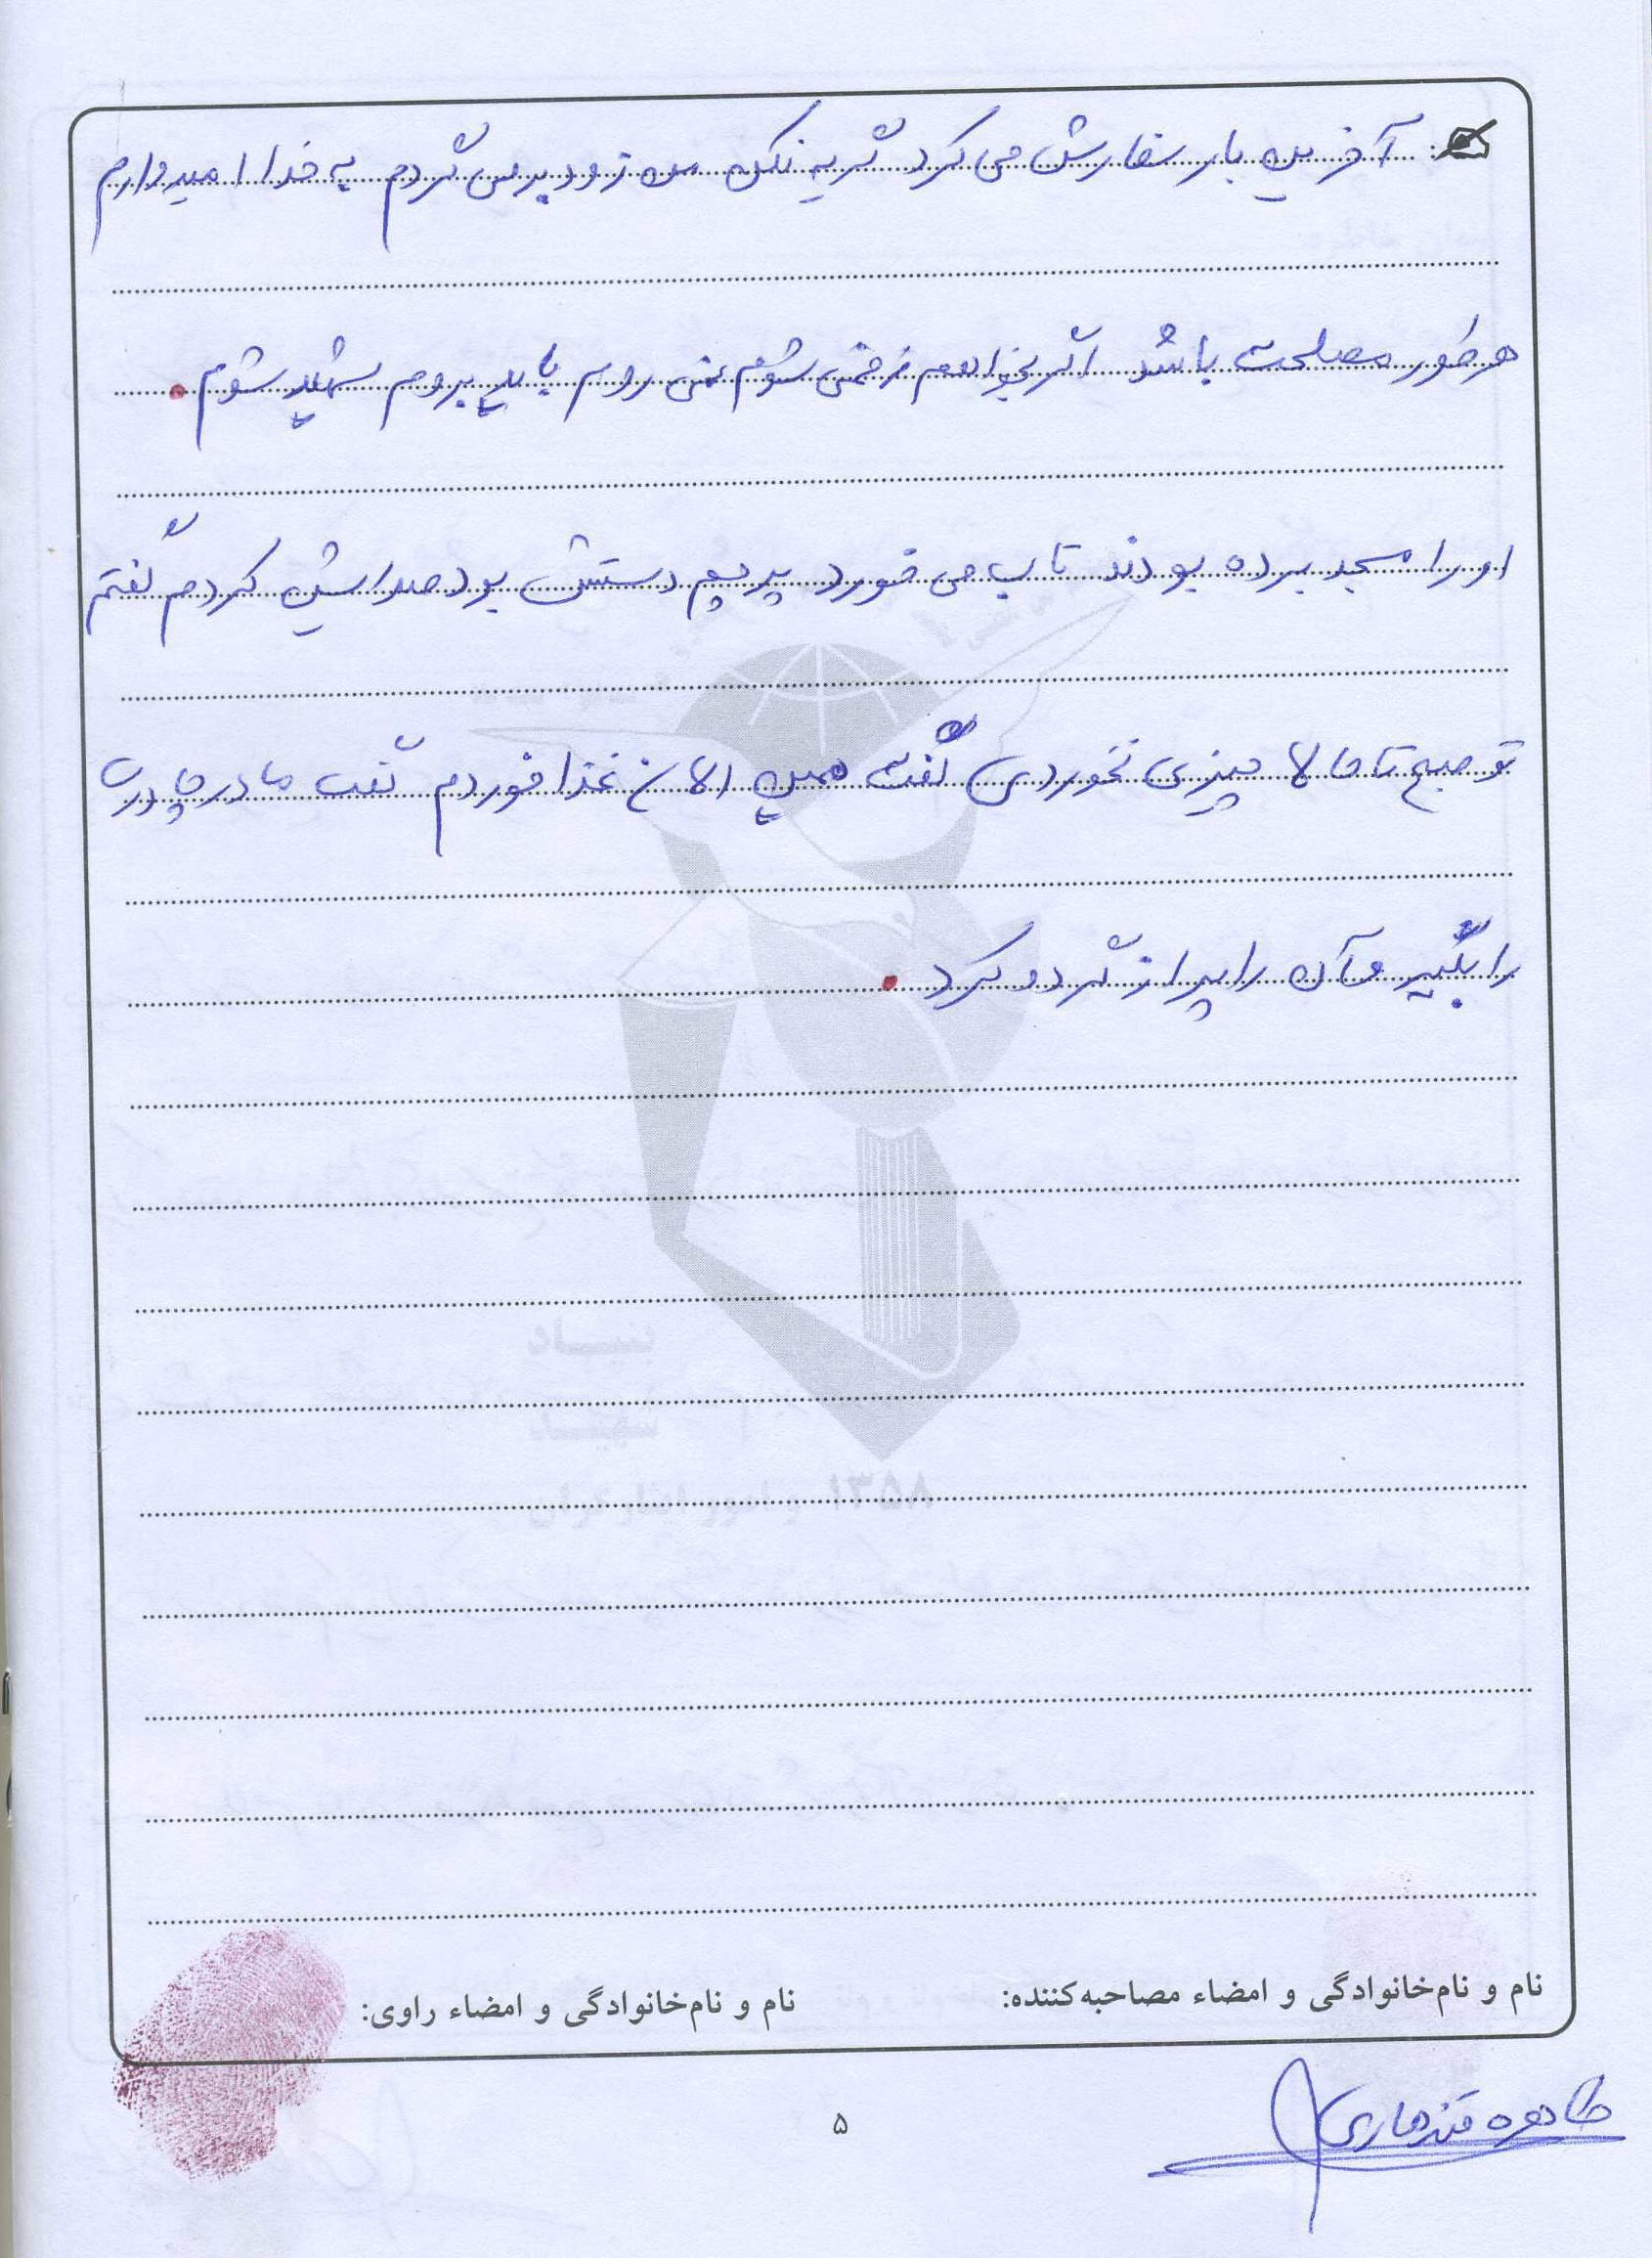 آخرین بار سفارش می کرد گریه نکن من زود برمی گردم به خدا امیدوارم
هر طور مصلحت باشد اگر بخواهم زخمی شوم نمی روم باید بروم شهید شوم.
او را مسجد برده بودند تاب می خورد پرچم دستش بود صدایش کردم گفتم
تو صبح تا حالا چیزی نخوردی گفت همین الان غذا خوردم گفت مادر چادرت
را بگیر و آن را پر از گردو کرد.
بنیاد
شهید
۱۳۵۸ و امور ایثارگران
نام و نام‌خانوادگی و امضاء مصاحبه‌کننده:
نام و نام‌خانوادگی و امضاء راوی:
طاهره قندهاری
۵